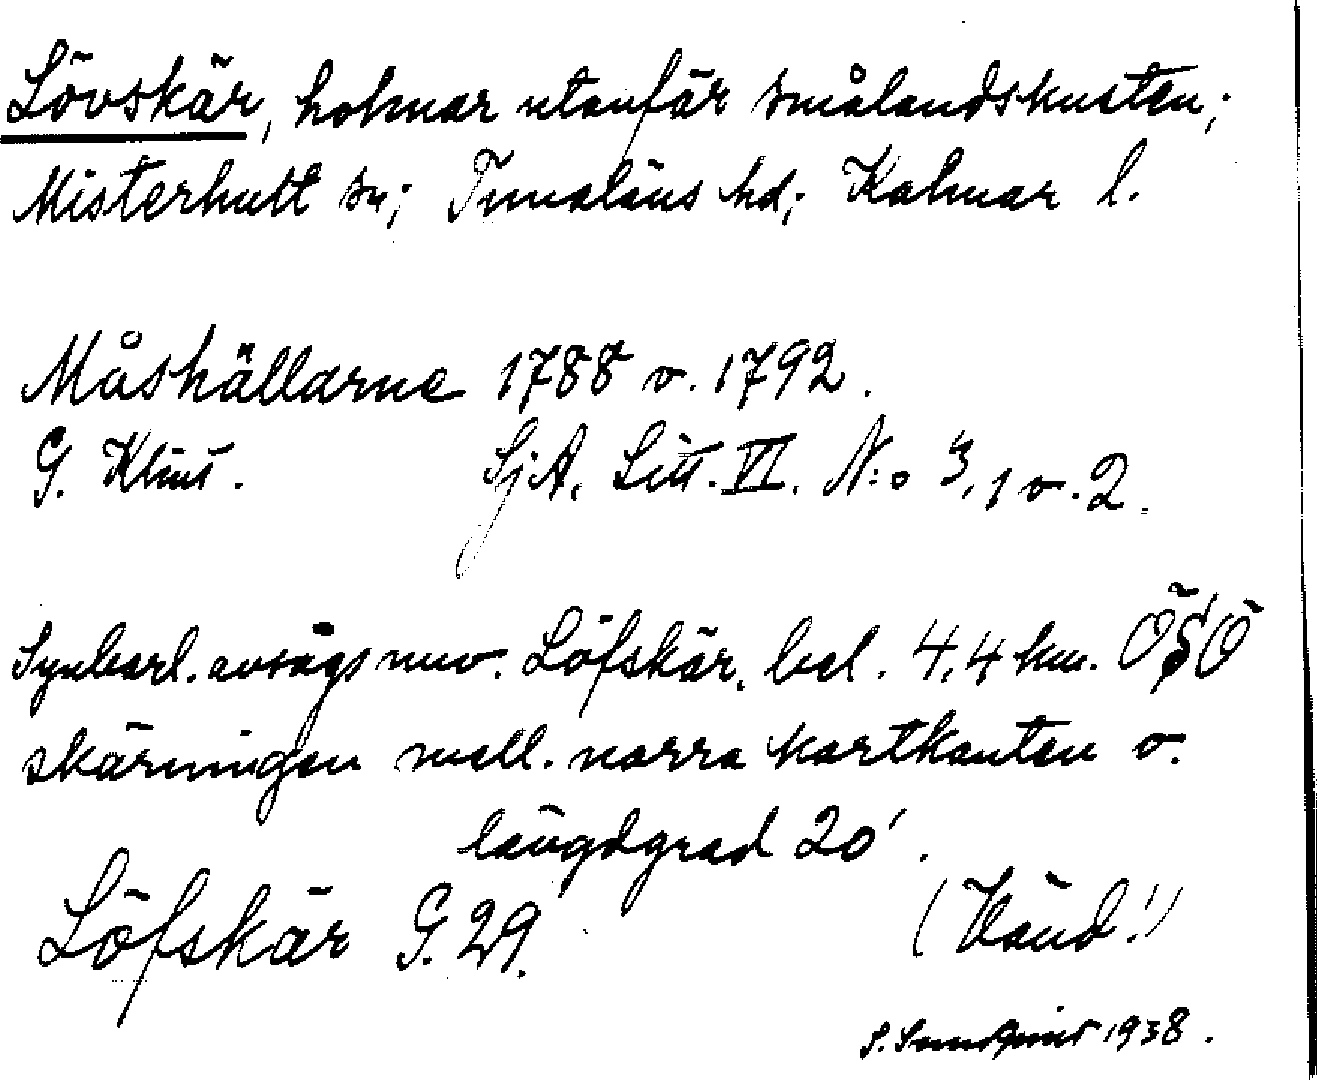 Lövskär, holmar utanför Smålandskusten;
Misterhult sn; Tunaläns hd; Kalmar l.
Måshällarne 1788 o. 1792.
G. Klint. SjA. Litt. VI. N:o 3, 1 o. 2.
Synbarl. avsågs nuv. Löfskär, bel. 4,4 km. ÖSÖ
skärningen mell. norra kartkanten o.
längdgrad 20'.
Löfskär G. 29.
(Vänd!)
S. 1938.